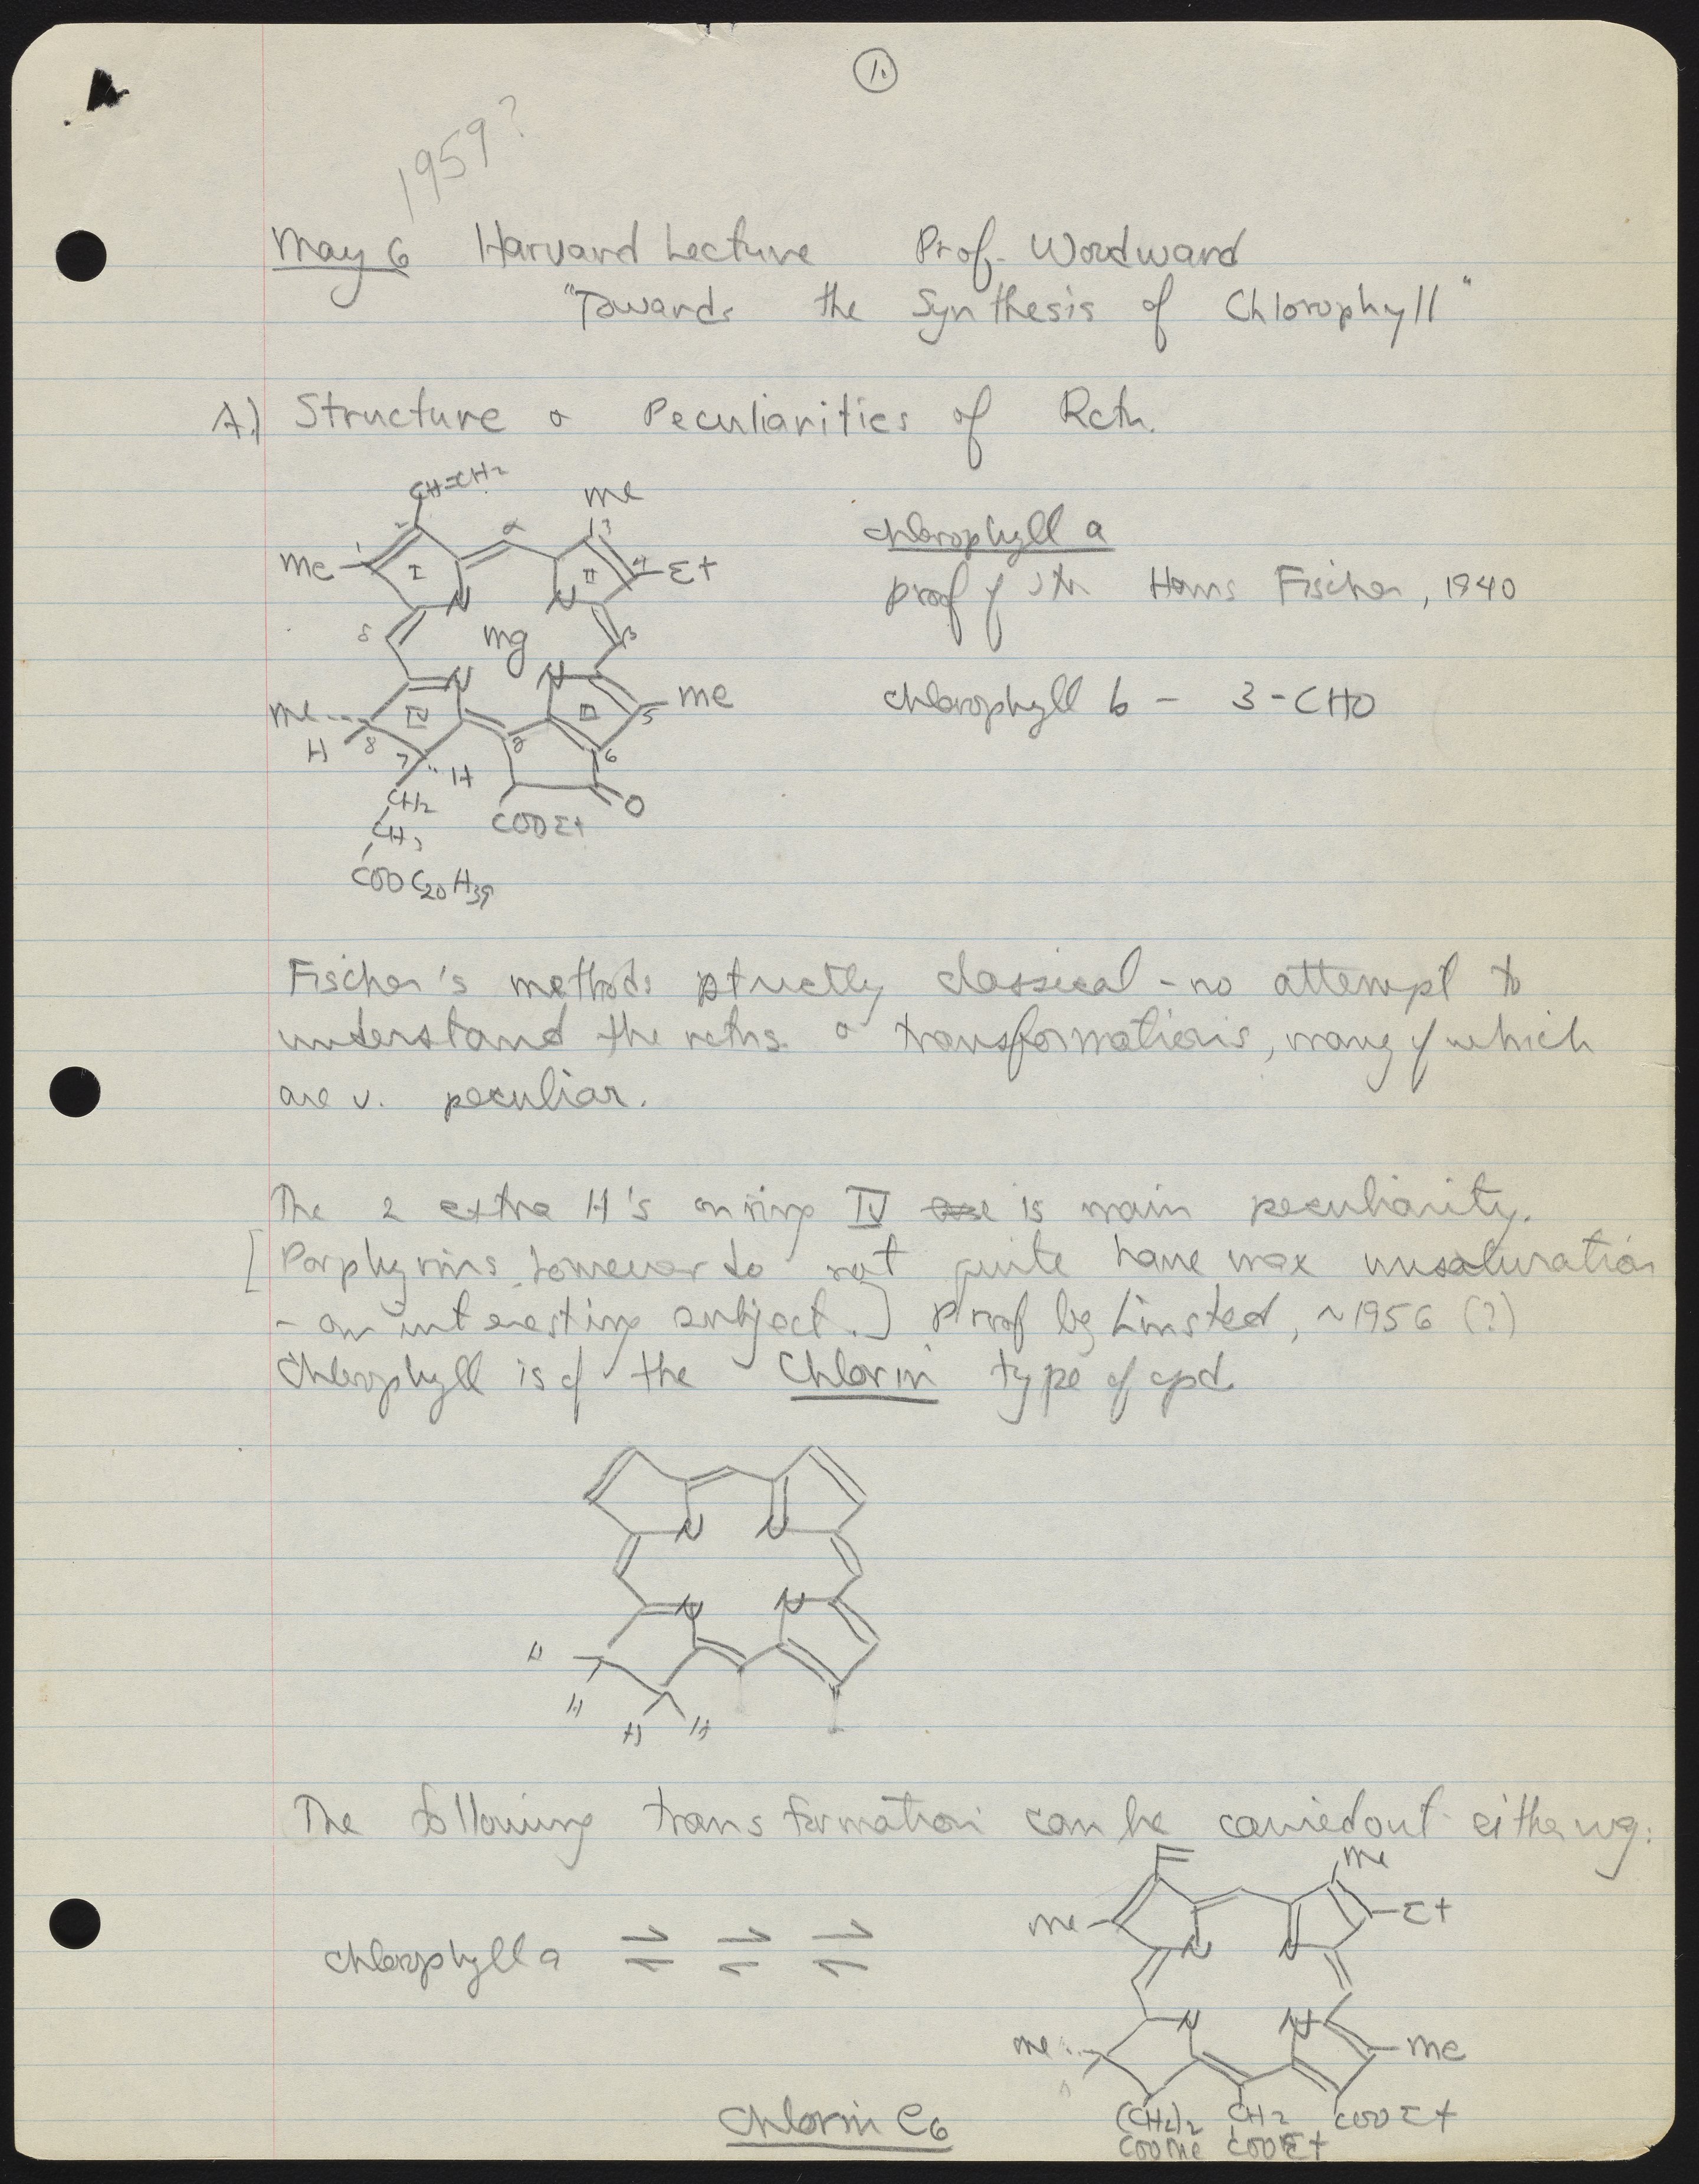 1.
1959?
May 6 Harvard Lecture Prof. Woodward
"Towards the Synthesis of Chlorophyll"
A.) Structure & Peculiarities of Rctn.
CH=CH2
Me
2 α 3
1
Me I II 4 Et
N N
δ Mg β
N N
Me IV III 5 Me
H 8 γ 6
7 H
CH2 O
CH2 COOEt
COOC20H39
chlorophyll a
proof of str Hans Fischer, 1940
chlorophyll b - 3-CHO
Fischer's methods strictly classical - no attempt to
understand the rctns & transformations, many of which
are v. peculiar.
The 2 extra H's on ring IV is main peculiarity.
[Porphyrins however do not quite have max unsaturation
- an interesting subject.] Proof by Linsted, ~1956 (?)
Chlorophyll is of the Chlorin type of cpd.
N N
N N
H
H
H H
The following transformation can be carried out either way:
Me
Me Et
N N
chlorophyll a ⇌ ⇌ ⇌
N N
Me Me
(CH2)2 CH2 COOEt
COOMe COOEt
Chlorin e6